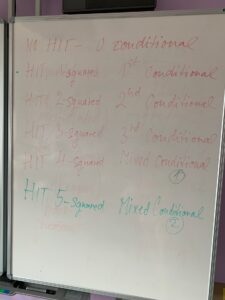 HIT - 0 conditional
HIT 1-squared 1st Conditional
HIT 2-squared 2nd Conditional
HIT 3-squared 3rd Conditional
HIT 4-squared Mixed Conditional
1
HIT 5-squared Mixed Conditional
2